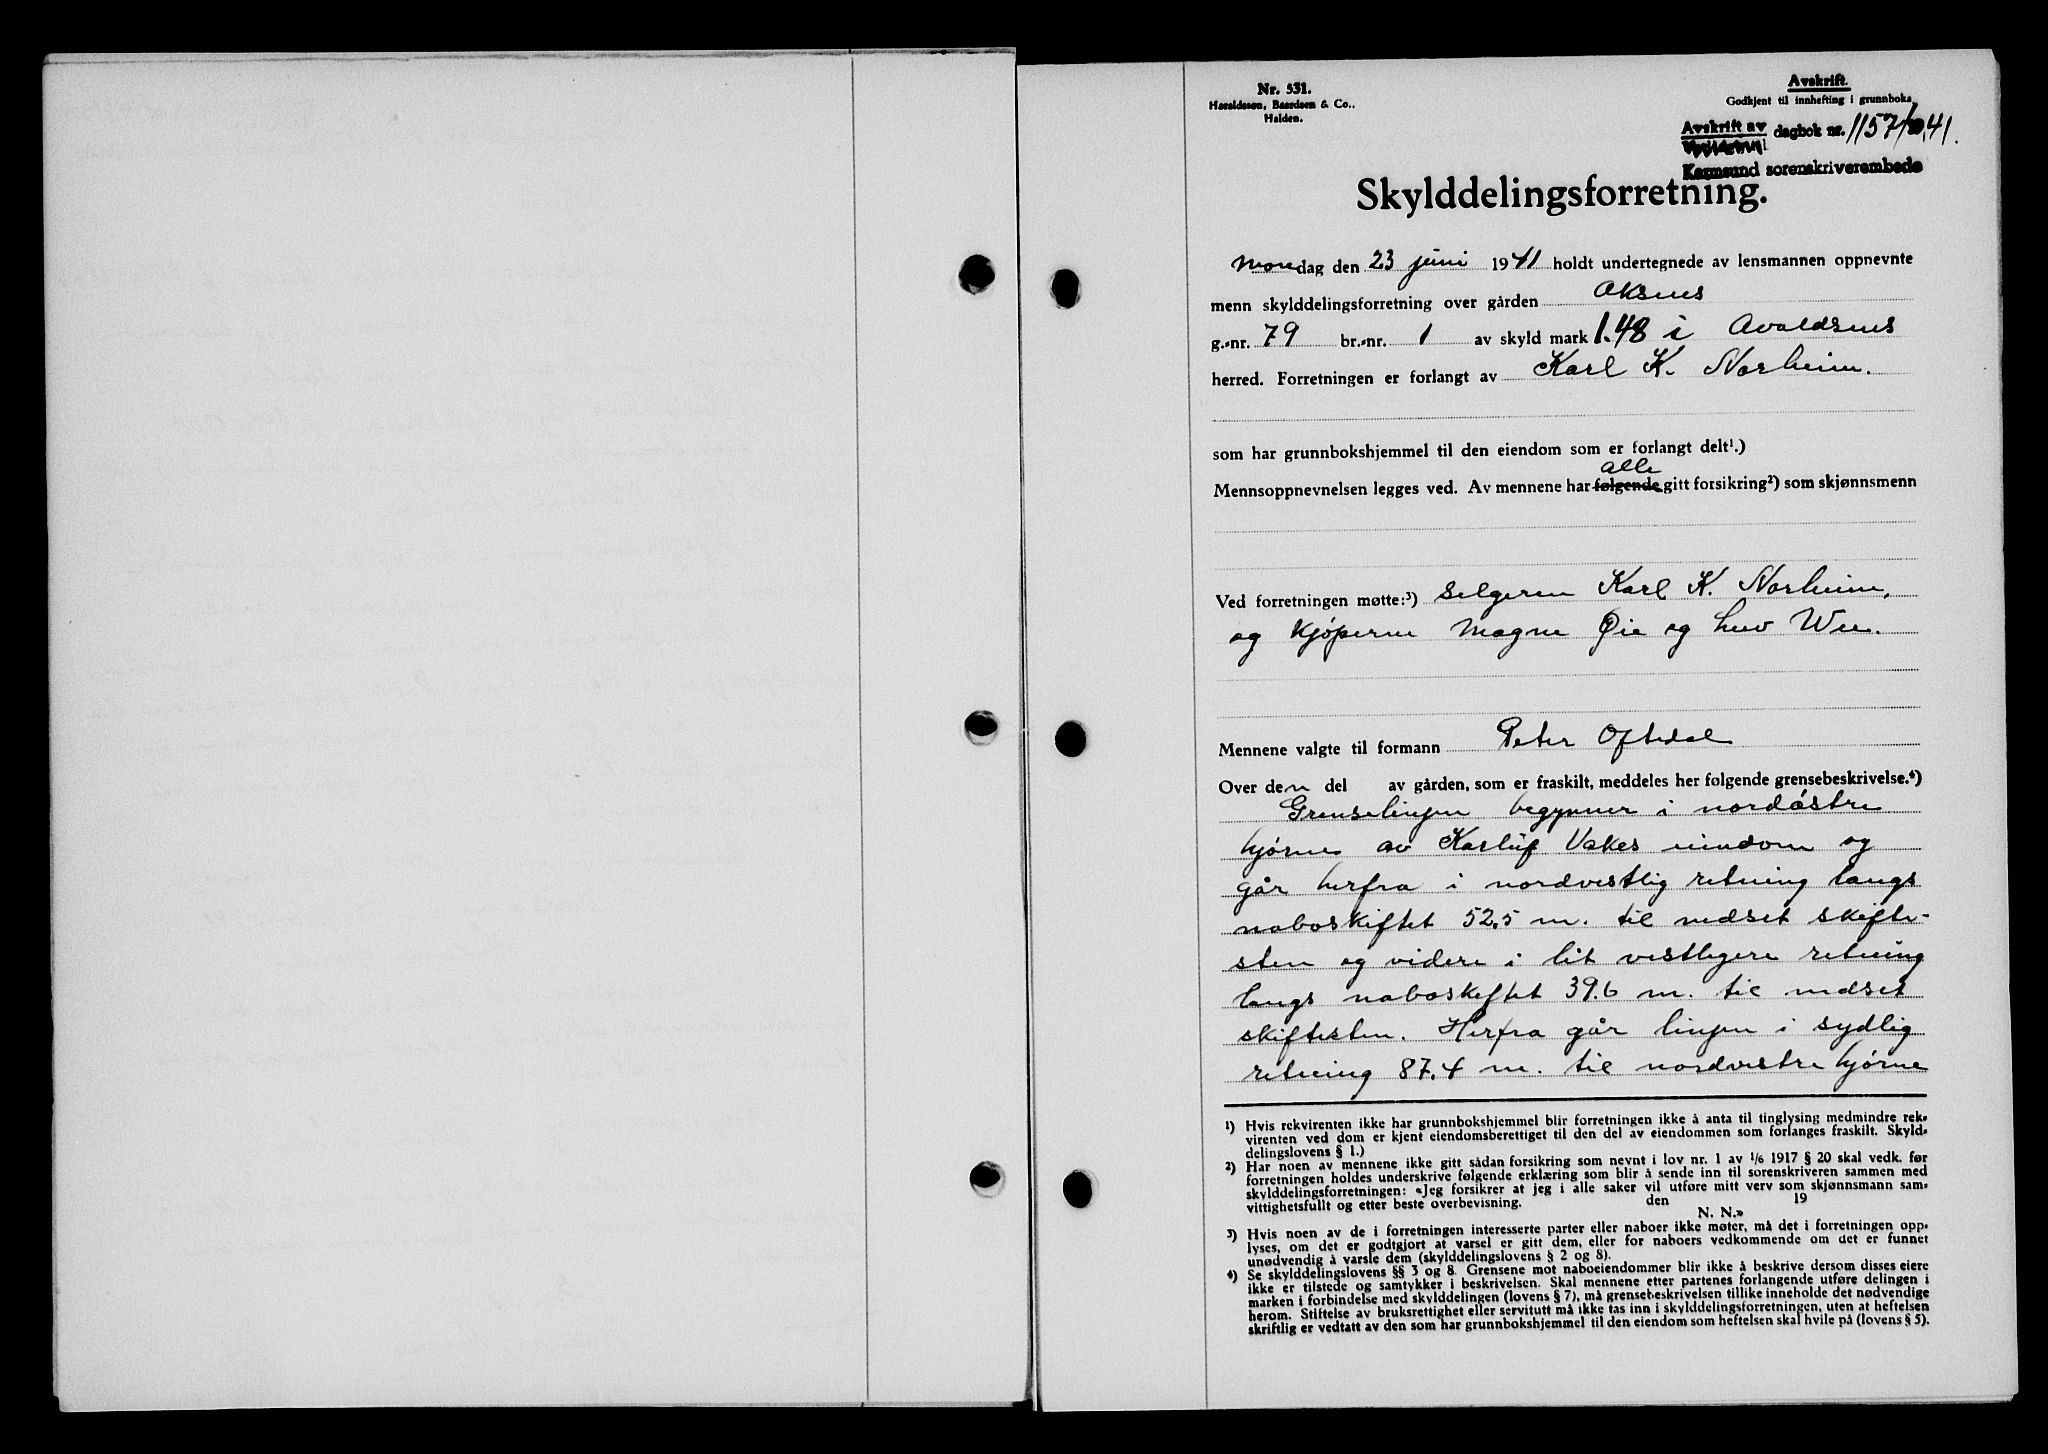 Nr. 531.
Haraldssen, Baardsen & Co.,
Halden.
Avskrift.
Godkjent til innhefting i grunnboka.
Avskrift av dagbok nr. 1157/1941.
Karmsund sorenskriverembede
Skylddelingsforretning.
Mandag den 23 juni 1941 holdt undertegnede av lensmannen oppnevnte
menn skylddelingsforretning over gården Aksnes
g.-nr. 79 br.-nr. 1 av skyld mark 1.48 i Avaldsnes
herred. Forretningen er forlangt av Karl K. Norheim.
som har grunnbokshjemmel til den eiendom som er forlangt delt¹.)
alle
Mennsoppnevnelsen legges ved. Av mennene har følgende gitt forsikring²) som skjønnsmenn
Ved forretningen møtte:³) Selgeren Karl K. Norheim,
og kjøperne Magne Øie og Wee.
Mennene valgte til formann Peter Oftedal
Over den del av gården, som er fraskilt, meddeles her følgende grensebeskrivelse.⁴)
Grenselinjen begynner i nordøstre
hjørne av Karluf Vakes eiendom og
går herfra i nordvestlig retning langs
naboskiftet 52,5 m. til nedset skifte-
sten og videre i lit vestligere retning
langs naboskiftet 39.6 m. til nedset
skiftesten. Herfra går linjen i sydlig
retning 87.4 m. til nordvestre hjørne
¹) Hvis rekvirenten ikke har grunnbokshjemmel blir forretningen ikke å anta til tinglysing medmindre rek-
virenten ved dom er kjent eiendomsberettiget til den del av eiendommen som forlanges fraskilt. Skyld-
delingslovens § 1.)
²) Har noen av mennene ikke gitt sådan forsikring som nevnt i lov nr. 1 av 1/6 1917 § 20 skal vedk. før
forretningen holdes underskrive følgende erklæring som blir å sende inn til sorenskriveren sammen med
skylddelingsforretningen: «Jeg forsikrer at jeg i alle saker vil utføre mitt verv som skjønnsmann sam-
vittighetsfullt og etter beste overbevisning. den 19
N. N.»
³) Hvis noen av de i forretningen interesserte parter eller naboer ikke møter, må det i forretningen opp-
lyses, om det er godtgjort at varsel er gitt dem, eller for naboers vedkommende om det er funnet
unødvendig å varsle dem (skylddelingslovens § 2 og 8).
⁴) Se skylddelingslovens §§ 3 og 8. Grensene mot naboeiendommer blir ikke å beskrive dersom disses eiere
ikke er tilstede og samtykker i beskrivelsen. Skal mennene etter partenes forlangende utføre delingen i
marken i forbindelse med skylddelingen (lovens § 7), må grensebeskrivelsen tillike inneholde det nødvendige
herom. Stiftelse av bruksrettighet eller servitutt må ikke tas inn i skylddelingsforretningen, uten at heftelsen
skriftlig er vedtatt av den som har grunnbokshjemmel til den eiendom som heftelsen skal hvile på (lovens § 5).